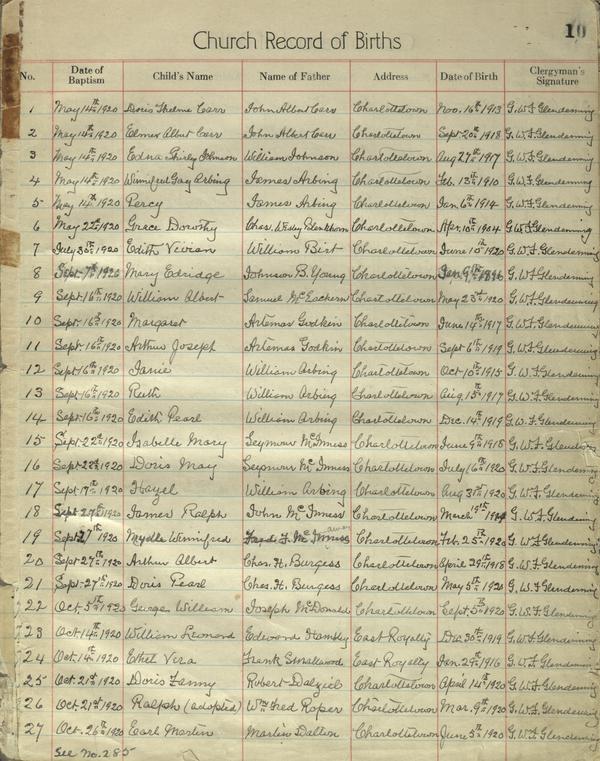 10
Church Record of Births
No. Date of Baptism Child's Name Name of Father Address Date of Birth Clergyman's Signature
1 May 14th 1920 Doris Thelma Carr John Albert Carr Charlottetown Nov. 16th 1913 G.W.F. Glendenning
2 May 14th 1920 Elmer Albert Carr John Albert Carr Charlottetown Sept 20th 1918 G.W.F. Glendenning
3 May 14th 1920 Edna Shirley Johnson William Johnson Charlottetown Aug 27th 1917 G.W.F. Glendenning
4 May 14th 1920 Winnifred Gay Arbing James Arbing Charlottetown Feb. 13th 1910 G.W.F. Glendenning
5 May 14th 1920 Percy James Arbing Charlottetown Jan 6th 1914 G.W.F. Glendenning
6 May 22nd 1920 Grace Dorothy Chas. Wesley Charlottetown Apr. 10th 1904 G.W.F. Glendenning
7 July 30th 1920 Edith Vivian William Birt Charlottetown June 10th 1920 G.W.F. Glendenning
8 Sept. 7th 1920 Mary Edridge Johnson B. Young Charlottetown Jan. 9th 1896 G.W.F. Glendenning
9 Sept. 16th 1920 William Albert Samuel McEachern Charlottetown May 23rd 1920 G.W.F. Glendenning
10 Sept. 16th 1920 Margaret Artemas Godkin Charlottetown June 14th 1917 G.W.F. Glendenning
11 Sept. 16th 1920 Arthur Joseph Artemas Godkin Charlottetown Sept 6th 1919 G.W.F. Glendenning
12 Sept. 16th 1920 Janie William Arbing Charlottetown Oct 10th 1915 G.W.F. Glendenning
13 Sept. 16th 1920 Ruth William Arbing Charlottetown Aug. 15th 1917 G.W.F. Glendenning
14 Sept. 16th 1920 Edith Pearl William Arbing Charlottetown Dec. 14th 1919 G.W.F. Glendenning
15 Sept. 22nd 1920 Isabelle Mary Seymour McInness Charlottetown June 9th 1918 G.W.F. Glendenning
16 Sept 22nd 1920 Doris May Seymour McInness Charlottetown July 16th 1920 G.W.F. Glendenning
17 Sept. 17th 1920 Hazel William Arbing Charlottetown Aug 31st 1920 G.W.F. Glendenning
18 Sept. 27th 1920 James Ralph John McInness Charlottetown March 19th G.W.F. Glendenning
19 Sept 27th 1920 Winnifred McInness Charlottetown Feb. 25th 1920 G.W.F. Glendenning
20 Sept. 27th 1920 Arthur Albert Chas. H. Burgess Charlottetown April 29th 1918 G.W.F. Glendenning
21 Sept. 27th 1920 Doris Pearl Chas. H. Burgess Charlottetown May 5th 1920 G.W.F. Glendenning
22 Oct. 5th 1920 George William Joseph McDonald Charlottetown Sept. 5th 1920 G.W.F. Glendenning
23 Oct. 14th 1920 William Leonard Edward East Royalty Dec 30th 1919 G.W.F. Glendenning
24 Oct. 14th 1920 Ethel Vera Frank Smallwood East Royalty Jan. 29th 1916 G.W.F. Glendenning
25 Oct. 21st 1920 Doris Fanny Robert Dalziel Charlottetown April 14th 1920 G.W.F. Glendenning
26 Oct. 21st 1920 Ralph (adopted) Wm Fred Roper Charlottetown Mar. 9th 1920 G.W.F. Glendenning
27 Oct. 26th 1920 Earl Martin Martin Dalton Charlottetown June 5th 1920 G.W.F. Glendenning
See No. 285